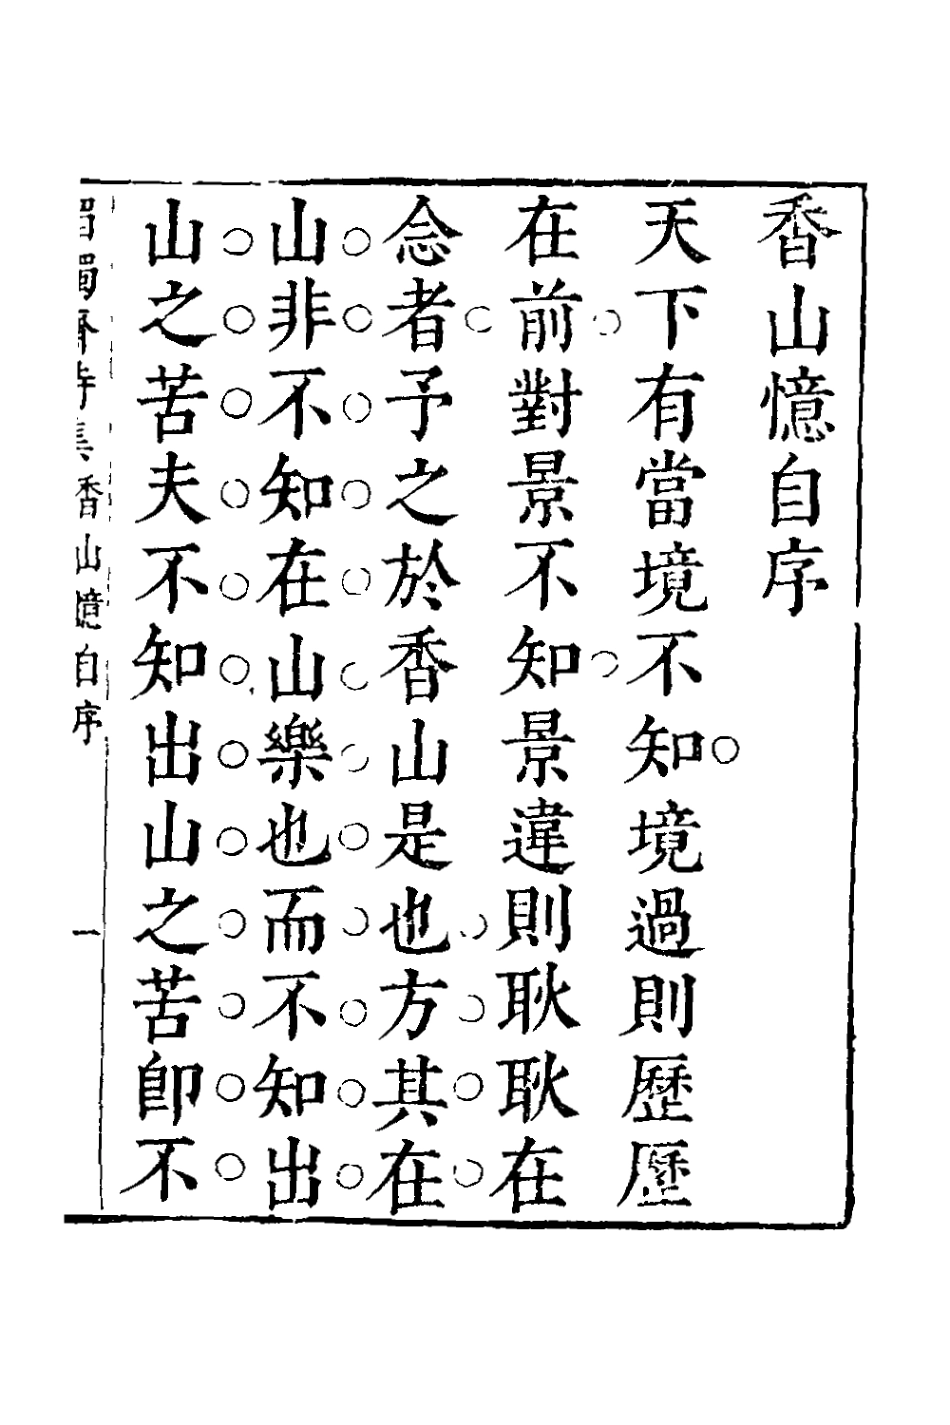 香山憶自序
天下有當境不知境過則歷歷
在前對景不知景違則耿耿在
念者予之於香山是也方其在
山非不知在山樂也而不知出
山之苦夫不知出山之苦卽不
香山憶自序
一